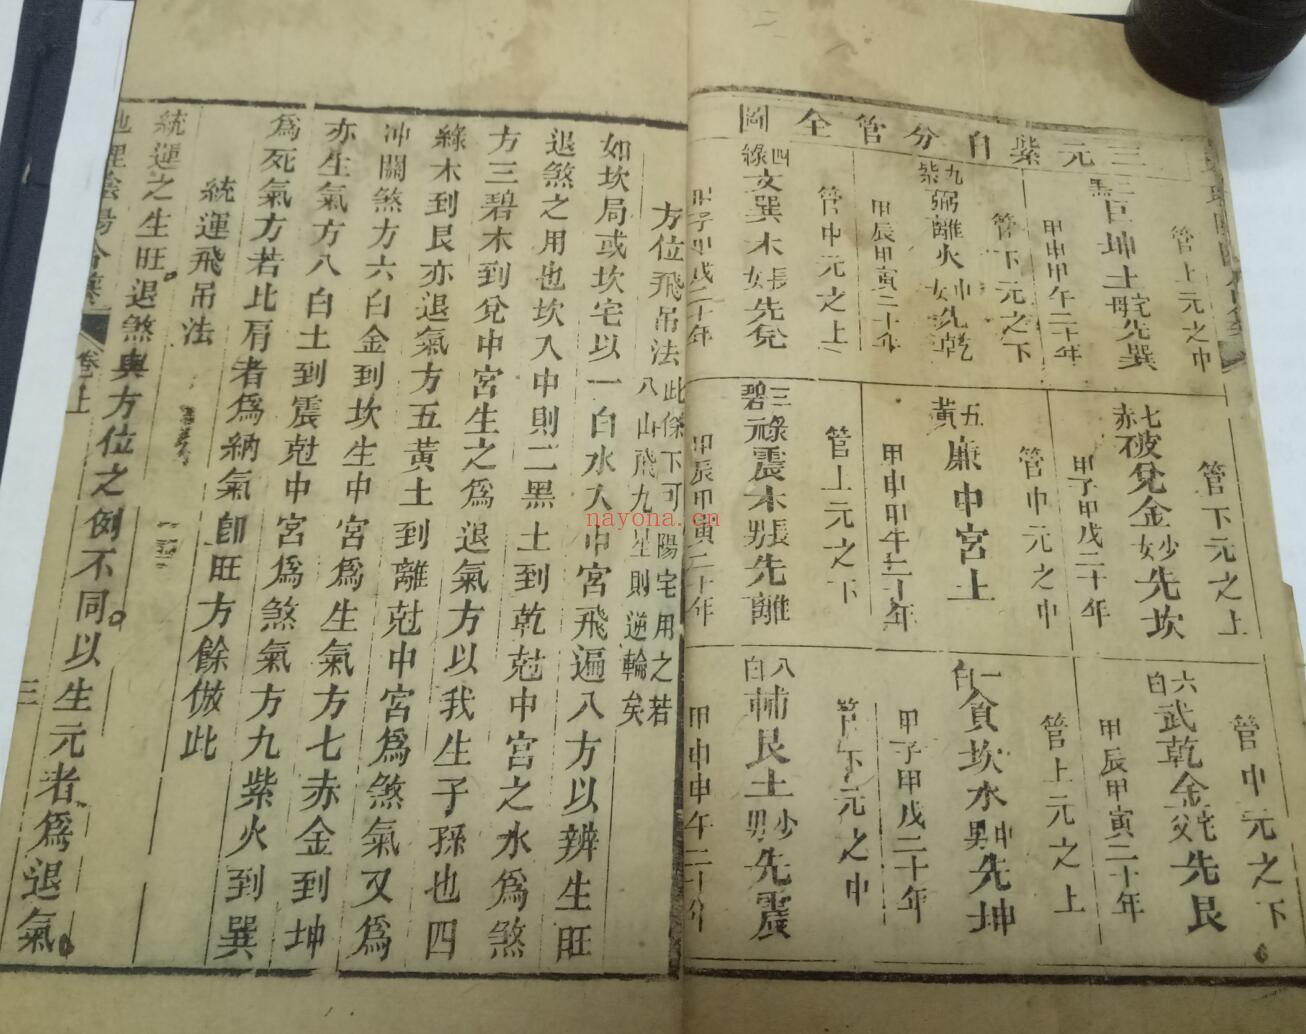 三元紫白分管全圖
二黑巨坤土宅母先巽
管上元之中
甲申甲午二十年
七赤破兌金妙先坎
管下元之上
甲子甲戌二十年
六白武乾金老父先艮
管中元之下
甲辰甲寅二十年
九紫弼離火中女先乾
管下元之下
甲辰甲寅二十年
五黃廉中宮土
管中元之中
甲申甲午二十年
一白貪坎水中男先坤
管上元之上
甲子甲戌二十年
四綠文巽木長女先兌
管中元之上
甲子甲戌二十年
三碧祿震木長男先離
管上元之下
甲辰甲寅二十年
八白輔艮土少男先震
管下元之中
甲申甲午二十年
方位飛吊法此條下可陽宅用之若八山飛九星則逆輪矣
如坎局或坎宅以一白水入中宮飛遍八方以辨生旺
退煞之用也坎入中則二黑土到乾尅中宮之水為煞
方三碧木到兌中宮生之為退氣方以我生子孫也四
綠木到艮亦退氣方五黃土到離尅中宮為煞氣又為
沖關煞方六白金到坎生中宮為生氣方七赤金到坤
亦生氣方八白土到震尅中宮為煞氣方九紫火到巽
為死氣方若比肩者為納氣卽旺方餘倣此
統運飛吊法
統運之生旺退煞與方位之例不同以生元者為退氣
地理陰陽合纂
卷一上
三
nayona.cn